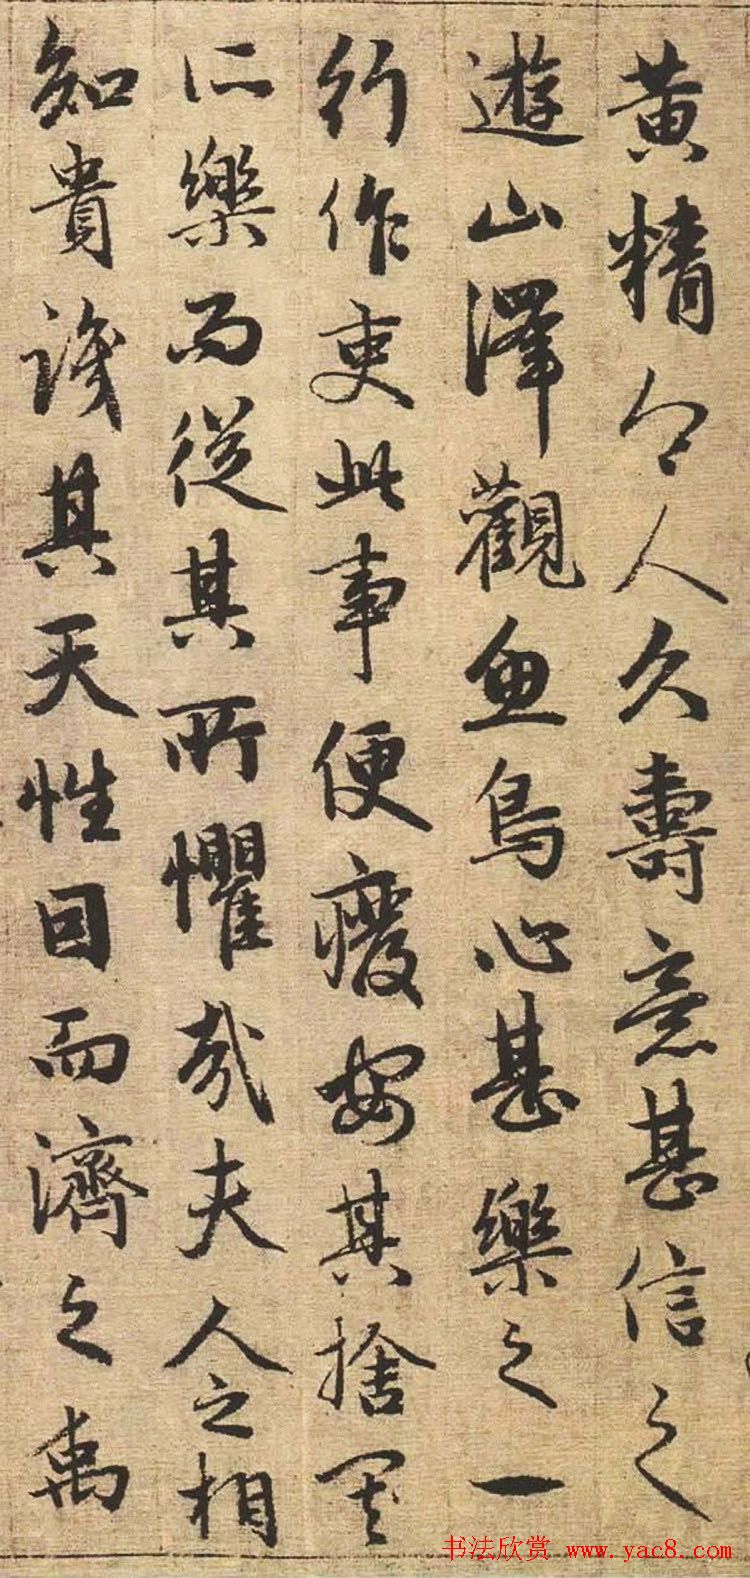 黄精令人久壽意甚信之
遊山澤觀魚鳥心甚樂之一
行作吏此事便廢安其捨其
所樂而從其所懼哉夫人之相
知貴識其天性因而濟之禹
书法欣赏 www.yac8.com